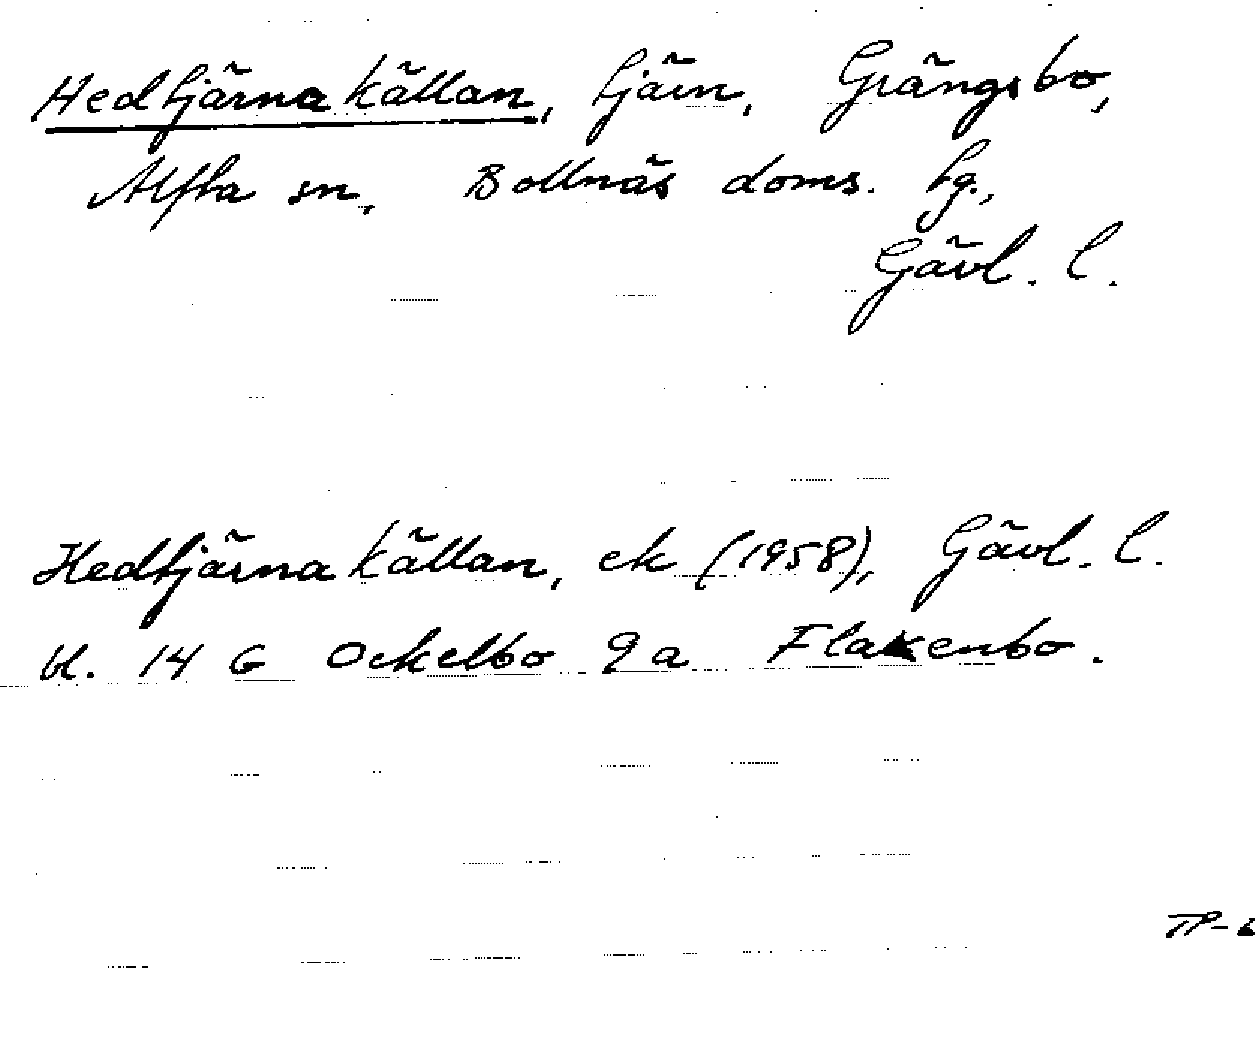 Hedtjärnakällan, tjärn, Grängsbo,
Alfta sn, Bollnäs doms. tg.,
Gävl. l.
Hedtjärnakällan, ek (1958), Gävl. l.
bl. 14 G Ockelbo 9a Flakenbo.